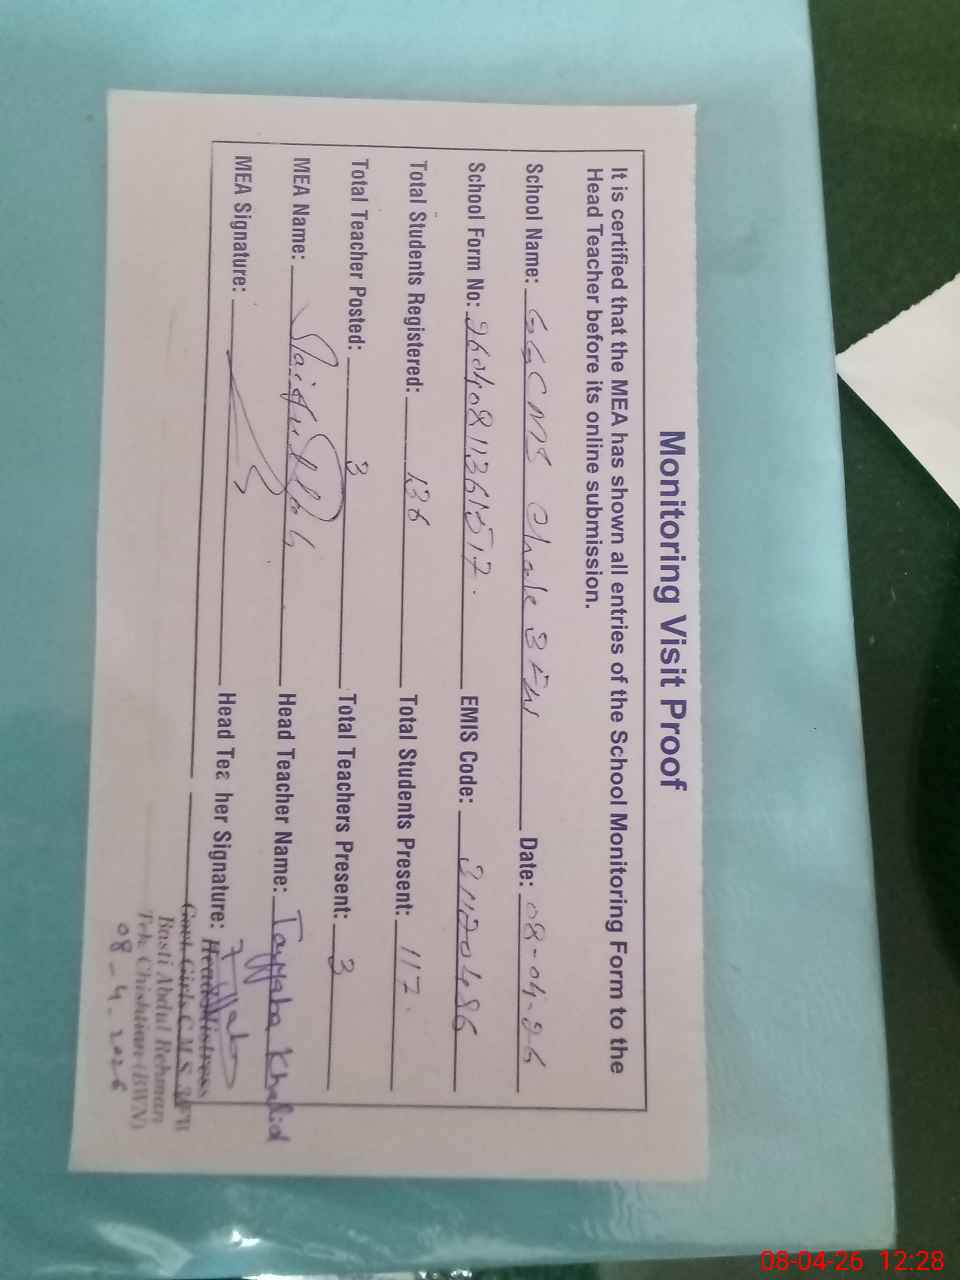 Monitoring Visit Proof
It is certified that the MEA has shown all entries of the School Monitoring Form to the
Head Teacher before its online submission.
School Name: GGCMS Chak 3 FW Date: 08-04-26
School Form No: EMIS Code: 31120486
Total Students Registered: 136 Total Students Present: 117
Total Teacher Posted: 3 Total Teachers Present: 3
MEA Name: Saifullah Head Teacher Name: Tayyaba Khalid
MEA Signature: Head Teacher Signature:
Head Mistress
Govt. Girls C.M.S.
Basti Abdul Rehman
Teh: Chishtian (BWN)
08-4-2026
08-04-26 12:28